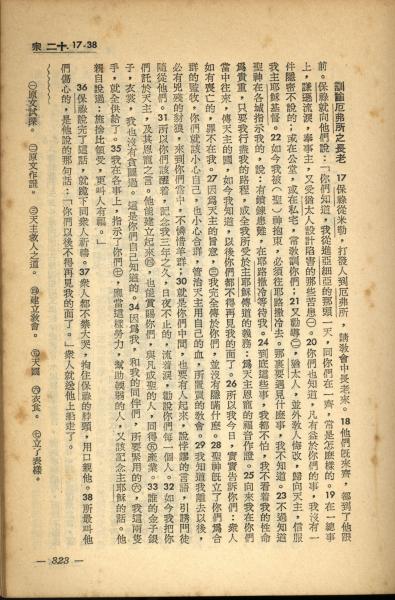 宗二十 17-38
訓諭厄弗所之長老 17保祿從米勒，打發人到厄弗所，請教會中長老來。18他們既來齊，都到了他跟
前。保祿就向他們說：「你們知道，我從進亞細亞的那頭一天，同你們在一齊，常是怎麼樣的。19在一總事
上，謙遜流淚，事主，又受猶太人設計陷害的那些苦患㊀20你們也知道，凡有益於你們的事，我沒有一
件隱密不說的；或在公堂，或在私宅，常教訓你們；21又勸導㊁，猶太人，並外教人悔改，歸向天主，信服
我主耶穌基督。22如今我被（聖）神拘束，必須往耶路撒冷去。那裏要遇見什麼事，我不知道。23不過知道
聖神在各城指示我的，說：有鎖鍊患難，在耶路撒冷等待我。24到底這些事，我都不怕，我不看着我的性命
爲貴重，只要我行盡我的路程，或全我所受於主耶穌傳道的義務：爲天主恩寵的福音作證。25向來我在你們
當中往來，傳天主的國，如今我知道，以後你們都不得再見我的面了。26所以我今日，實實告訴你們：衆人
如有喪亡的，罪不在我。27因爲天主的旨意，㊂我完全傳於你們，並沒有隱瞞什麼。28聖神旣立了你們爲合
群的監牧，你們就該小心自己，也小心合群，管治天主用自己的血，所置買的教會。29我知道我離去以後，
必有兇殘的豺狼，來到你們當中，不憐惜羊群；30就是你們中間，也要有人起來，說悖謬的言語，引誘門徒
隨從他們。31所以你們該醒着，記念我三年之久，日夜不止的，流着淚，勸說你們每一個人。32如今我把你
們託於天主，及其恩寵之言。他能建立起來㊃，也能賞賜你們，與凡成聖的人，同得㊄產業。33誰的金子銀
子，衣裳，我也沒有貪圖過。這是你們自己知道的。34因爲我，和我的同伴們，所要緊用的㊅，我這兩隻
手，就全供給了。35我在各事上，指示了你們㊆，應當這樣勞力，幫助輭弱的人，又該記念主耶穌的話。他
親自說過：施捨比領受，更叫人有福。」
36保祿說完了這話，就跪下同衆人祈禱。37衆人都不禁大哭，拘住保祿的脖頸，用口親他。38所最叫他
們傷心的，是他說的那句話：「你們以後不得再見我的面了。」衆人就送他上船走了。
㊀原文試探。 ㊁原文作證。 ㊂天主救人之道。 ㊃建立教會。 ㊄天國 ㊅衣食。 ㊆立了表樣。
— 323 —